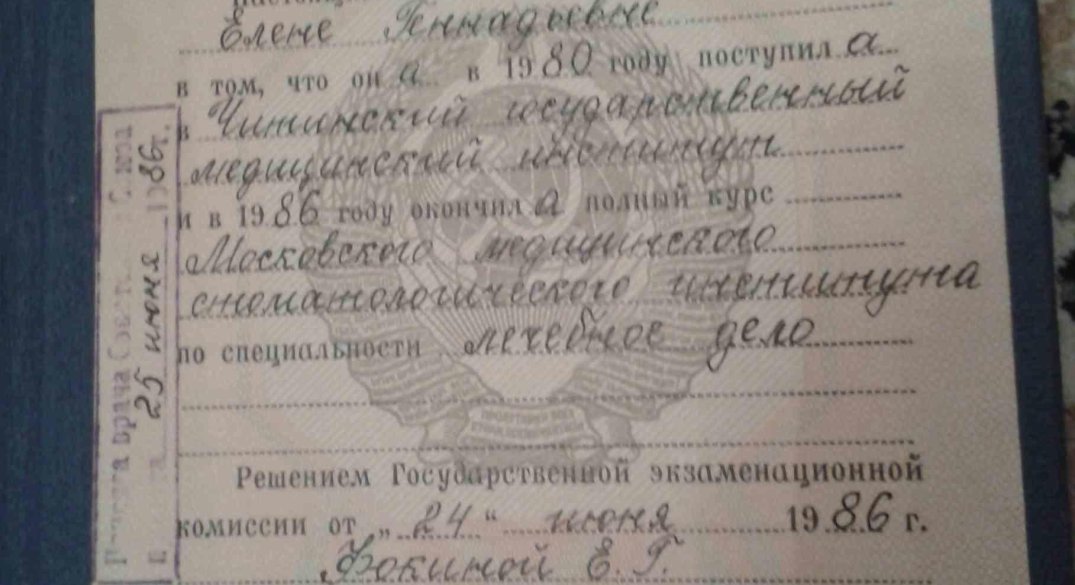 Елене Геннадьевне
в том, что он а в 1980 году поступил а
в Читинский государственный
медицинский институт
и в 1986 году окончил а полный курс
Московского медицинского
стоматологического института
по специальности лечебное дело
Решением Государственной экзаменационной
комиссии от „24“ июня 1986 г.
Фокиной Е. Г.
врача
25 июня 1986г.